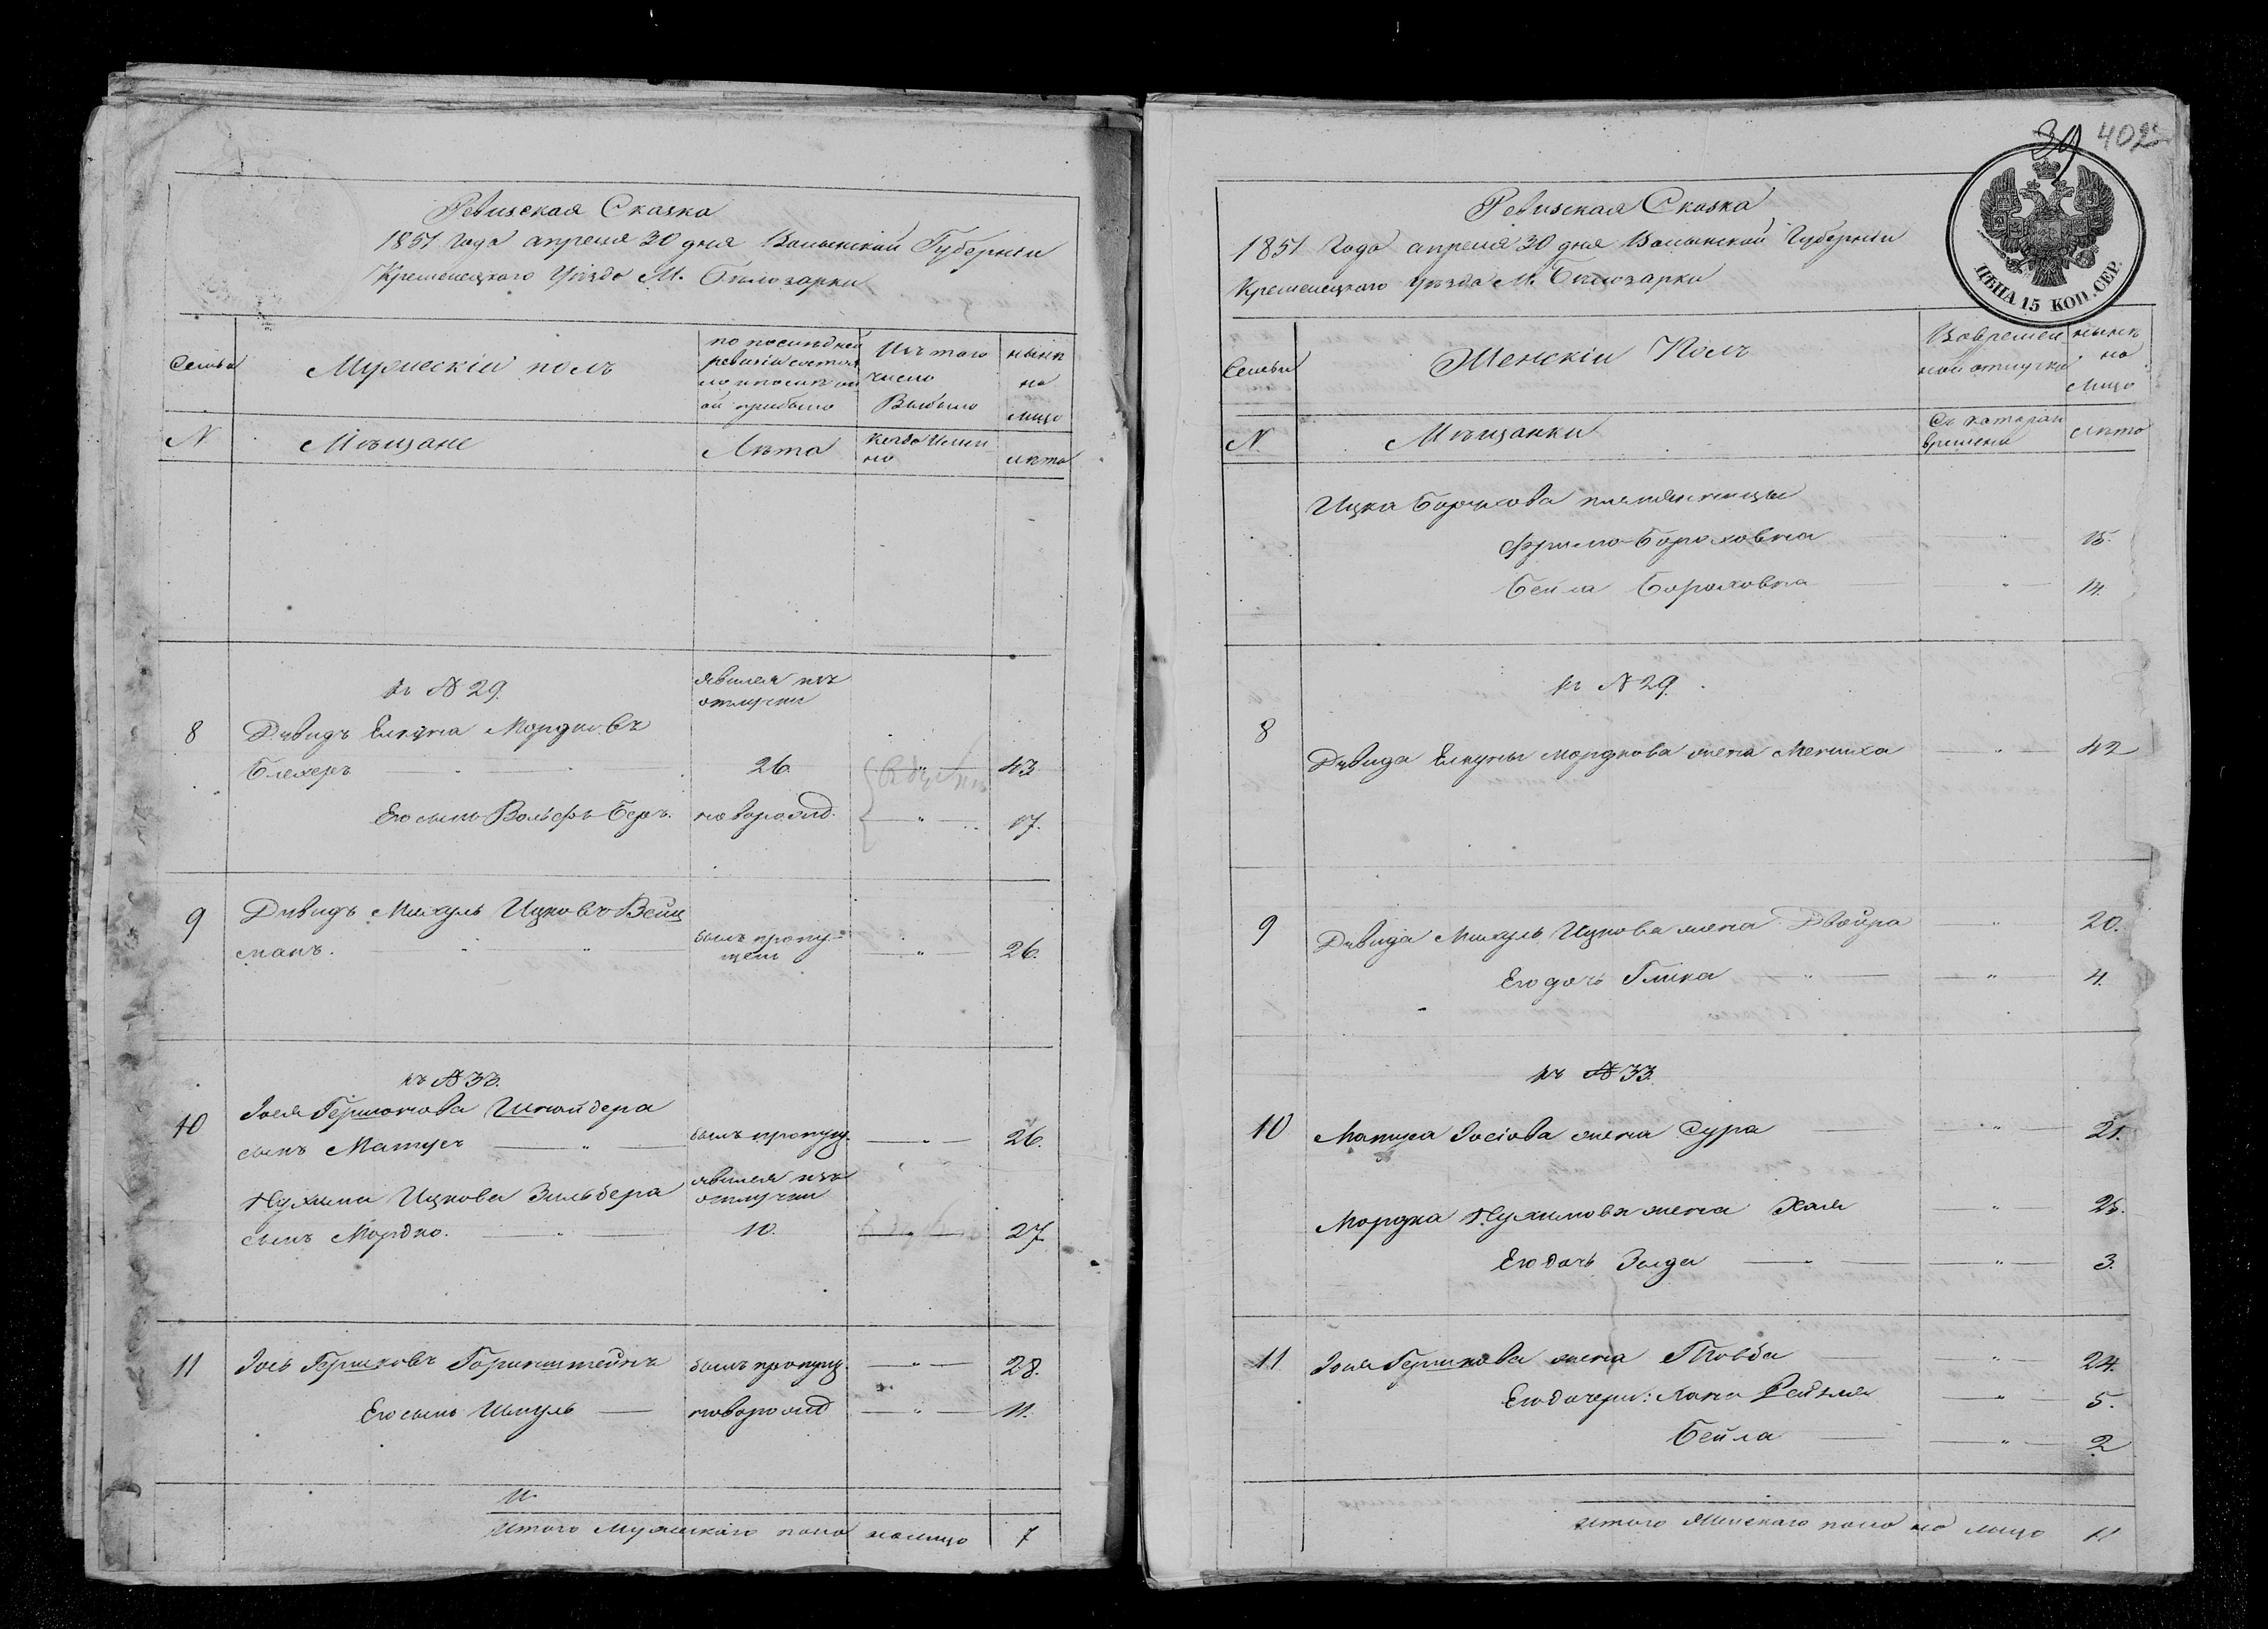 Ревизская Сказка
1851 Года апреля 30 дня Волынской Губерніи
Кременецкого Уѣзда М. Бѣлозорки
Семьи
Мужескій полъ
по последней
ревизіи состоя
ло и после он
ой прибыло
Изъ того
число
Выбыло
нынѣ
на
лицо
N
Мѣщане
Лѣта
Когда Имен
но
лѣта
къ N 29.
явился изъ
отлучки
8
Давидъ Елкуна Мордковъ
Блехеръ
26.
43
Его сынъ Вольфъ Беръ.
новорожд.
17.
9
Давидъ Михуль Ицковъ Вейц
манъ.
былъ пропу-
щен
26.
къ N 33.
10
Іося Гершонова Шнайдера
сынъ Матусъ
былъ пропущ.
26.
Нухима Ицкова Зильбера
явился изъ
отлучки
сынъ Мордко.
10.
27
11
Іось Гершковъ Горинштейнъ
былъ пропущ.
28.
Его сынъ Шмуль
новорожд
11.
Итого Мужескаго пола налицо
7
39
402
Ревизская Сказка
1851 Года апреля 30 дня Волынской Губерніи
Кременецкого Уѣзда М. Бѣлозорки
ЦѢНА 15 КОП. СЕР.
Семьи
Женскій Полъ
Вовремен
ной отлучки
нынѣ
на
Лицо
N.
Мѣщанки
Съ которая
времени
лѣта
Ицка Борухова племянницы
Фрима Бороховна
15.
Бейла Бороховна
14.
къ N 29.
8
Давида Елкуны Мордкова жена Мениха
42
9
Давида Михуль Ицкова жена Двойра
20.
Его дочь Гника
4.
къ N 33.
10
Матуса Іосіова жена Сура
21.
Мордка Нухимова жена Хая
Его дочь Золда
3.
11
Іося Гершкова жена Товба
24.
Его дочери: Хана Рейзля
5.
Бейла
2
Итого Женскаго пола на лицо
11